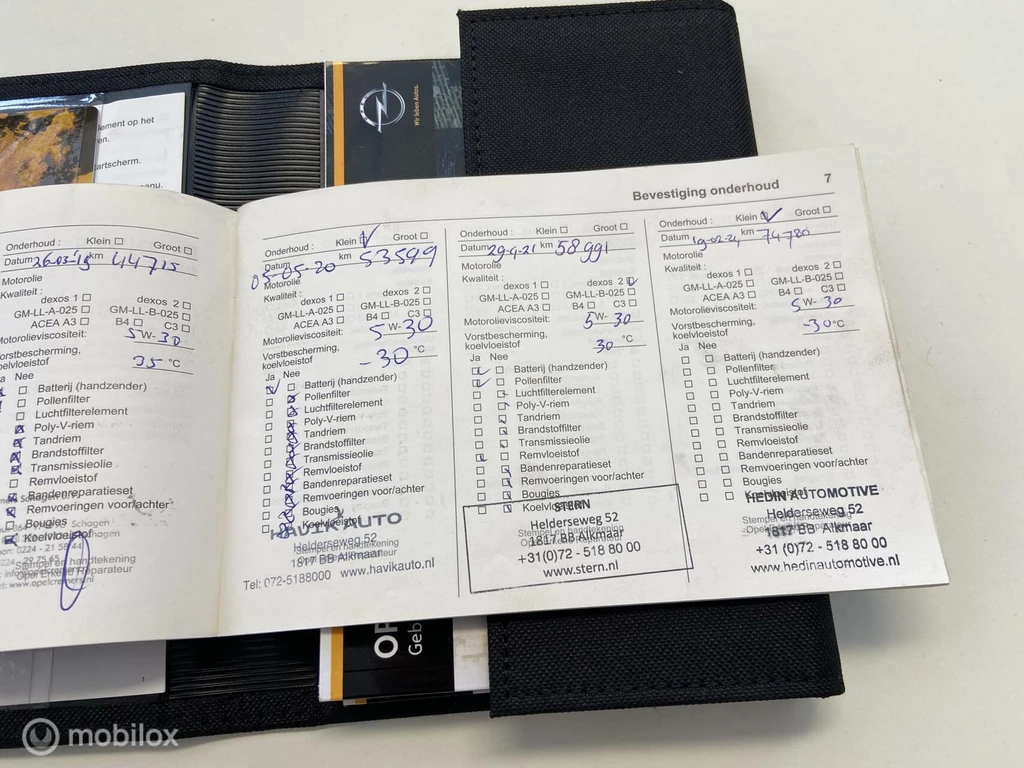 Wir leben Autos.
lement op het
en.
artscherm.
enu.
Bevestiging onderhoud 7
Onderhoud : Klein Groot
Datum 26-03-19 km 44715
Motorolie
Kwaliteit :
dexos 1 dexos 2
GM-LL-A-025 GM-LL-B-025
ACEA A3 B4 C3
Motorolieviscositeit: 5W-30
Vorstbescherming,
koelvloeistof 35 °C
Ja Nee
Batterij (handzender)
Pollenfilter
Luchtfilterelement
Poly-V-riem
Tandriem
Brandstoffilter
Transmissieolie
Remvloeistof
Bandenreparatieset
Remvoeringen voor/achter
Bougies
Koelvloeistof
Schagen
Stempel en handtekening
Opel Erkend Reparateur
Onderhoud : Klein Groot
Datum 05-05-20 km 53599
Motorolie
Kwaliteit :
dexos 1 dexos 2
GM-LL-A-025 GM-LL-B-025
ACEA A3 B4 C3
Motorolieviscositeit: 5W-30
Vorstbescherming,
koelvloeistof -30 °C
Ja Nee
Batterij (handzender)
Pollenfilter
Luchtfilterelement
Poly-V-riem
Tandriem
Brandstoffilter
Transmissieolie
Remvloeistof
Bandenreparatieset
Remvoeringen voor/achter
Bougies
Koelvloeistof
HAVIK AUTO
Helderseweg 52
Stempel en handtekening
1817 BB Alkmaar
Tel: 072-5188000 www.havikauto.nl
Onderhoud : Klein Groot
Datum 29-4-21 km 58991
Motorolie
Kwaliteit :
dexos 1 dexos 2
GM-LL-A-025 GM-LL-B-025
ACEA A3 B4 C3
Motorolieviscositeit: 5W-30
Vorstbescherming,
koelvloeistof 30 °C
Ja Nee
Batterij (handzender)
Pollenfilter
Luchtfilterelement
Poly-V-riem
Tandriem
Brandstoffilter
Transmissieolie
Remvloeistof
Bandenreparatieset
Remvoeringen voor/achter
Bougies
Koelvloeistof
STERN
Helderseweg 52
Stempel en handtekening
1817 BB Alkmaar
+31 (0)72 - 518 80 00
www.stern.nl
Onderhoud : Klein Groot
Datum 19-02-24 km 74780
Motorolie
Kwaliteit :
dexos 1 dexos 2
GM-LL-A-025 GM-LL-B-025
ACEA A3 B4 C3
Motorolieviscositeit: 5W-30
Vorstbescherming,
koelvloeistof -30 °C
Ja Nee
Batterij (handzender)
Pollenfilter
Luchtfilterelement
Poly-V-riem
Tandriem
Brandstoffilter
Transmissieolie
Remvloeistof
Bandenreparatieset
Remvoeringen voor/achter
Bougies
Koelvloeistof
HEDIN AUTOMOTIVE
Helderseweg 52
Stempel en handtekening
1817 BB Alkmaar
+31 (0)72 - 518 80 00
www.hedinautomotive.nl
OP
Geb
1
mobilox